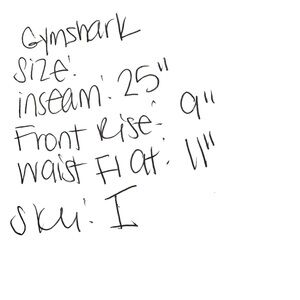 Gymshark
Size:
inseam: 25"
Front Rise: 9"
Waist Flat: 11"
SKU: I